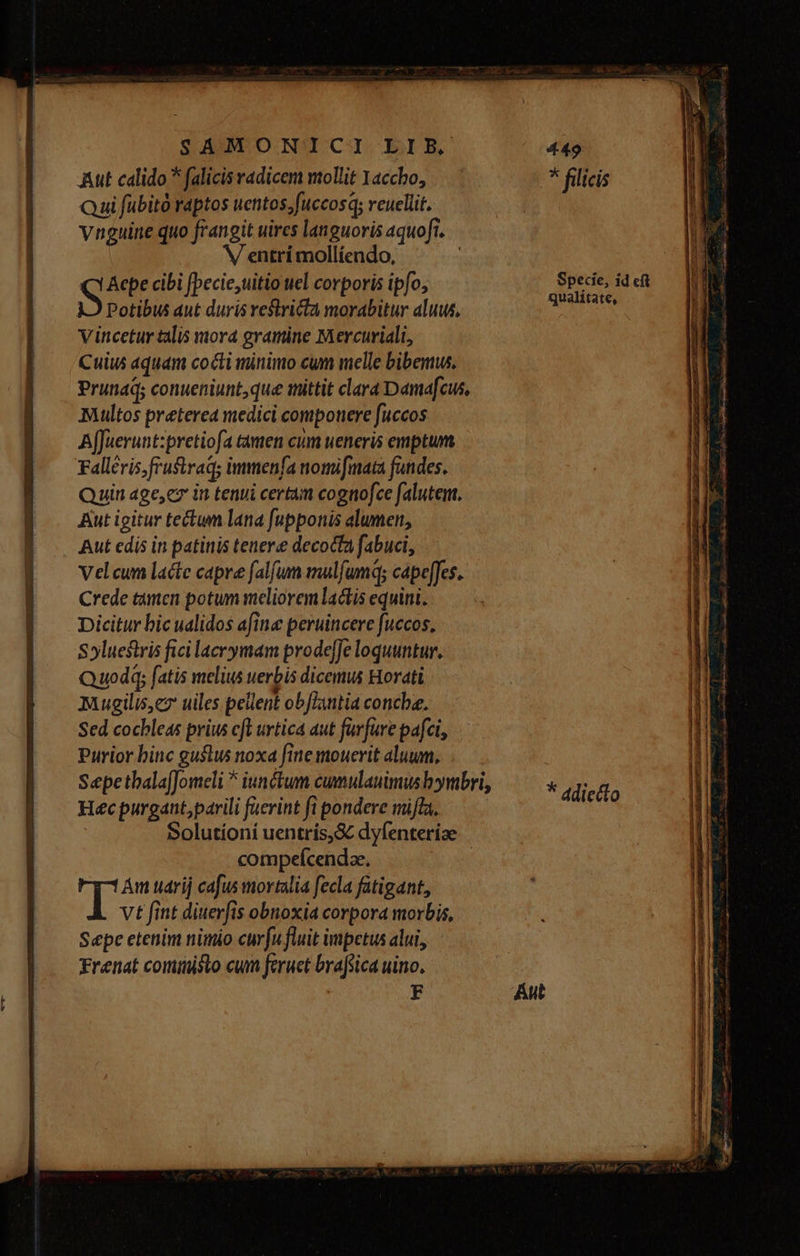 SAMONICI LIB. 449
Aut calido * ſalicis radicem mollit Iaccho, * filicis
Qui ſubitò raptos uentos, ſuccosq; reuellit.
Vnguine quo frangit uires languoris aquoſi.
Ventri molliendo,
SAepe cibi ſpecie, uitio uel corporis ipſo, Specie, id eſt
Potibus aut duris reſtricta morabitur aluus. qualitate,
Vincetur talis mora gramine Mercuriali,
Cuius aquam cocti minimo cum melle bibemus.
Prunaq; conueniunt, quæ mittit clara Damaſcus,
Multos præterea medici componere ſuccos
Aſſuerunt: pretioſa tamen cùm ueneris emptum
Falléris, fruſtraq; immenſa nomiſmata fundes.
Quin age, & in tenui certam cognoſce ſalutem.
Aut igitur tectum lana ſupponis alumen,
Aut edis in patinis teneræ decocta ſabuci,
Vel cum lacte capræ ſalſum mulſumq; capeſſes.
Crede tamen potum meliorem lactis equini.
Dicitur hic ualidos aſinæ peruincere ſuccos.
Sylueſtris fici lacrymam prodeſſe loquuntur.
Quodq; ſatis melius uerbis dicemus Horati
Mugilis, & uiles pellent obſtantia conchæ.
Sed cochleas prius eſt urtica aut furfure paſci,
Purior hinc guſtus noxa ſine mouerit aluum.
Sæpe thalaſſomeli * iunctum cumulauimus hymbri, * adiecto
Hæc purgant, parili fuerint ſi pondere miſta.
Solutioni uentris, & dyſenteriæ
compeſcendæ.
IAm uarij caſus mortalia ſecla fatigant,
Vt ſint diuerſis obnoxia corpora morbis,
Sæpe etenim nimio curſu fluit impetus alui,
Frænat commiſto cum feruet braſsica uino.
F Aut